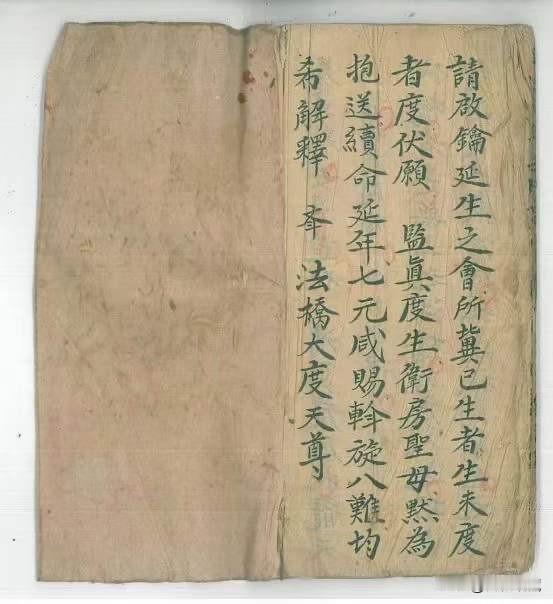 請啟鑰延生之會所冀已生者生未度
者度伏願　監真度生衛房聖母默為
抱送續命延年七元咸賜斡旋八難均
希解釋　奉　法橋大度天尊